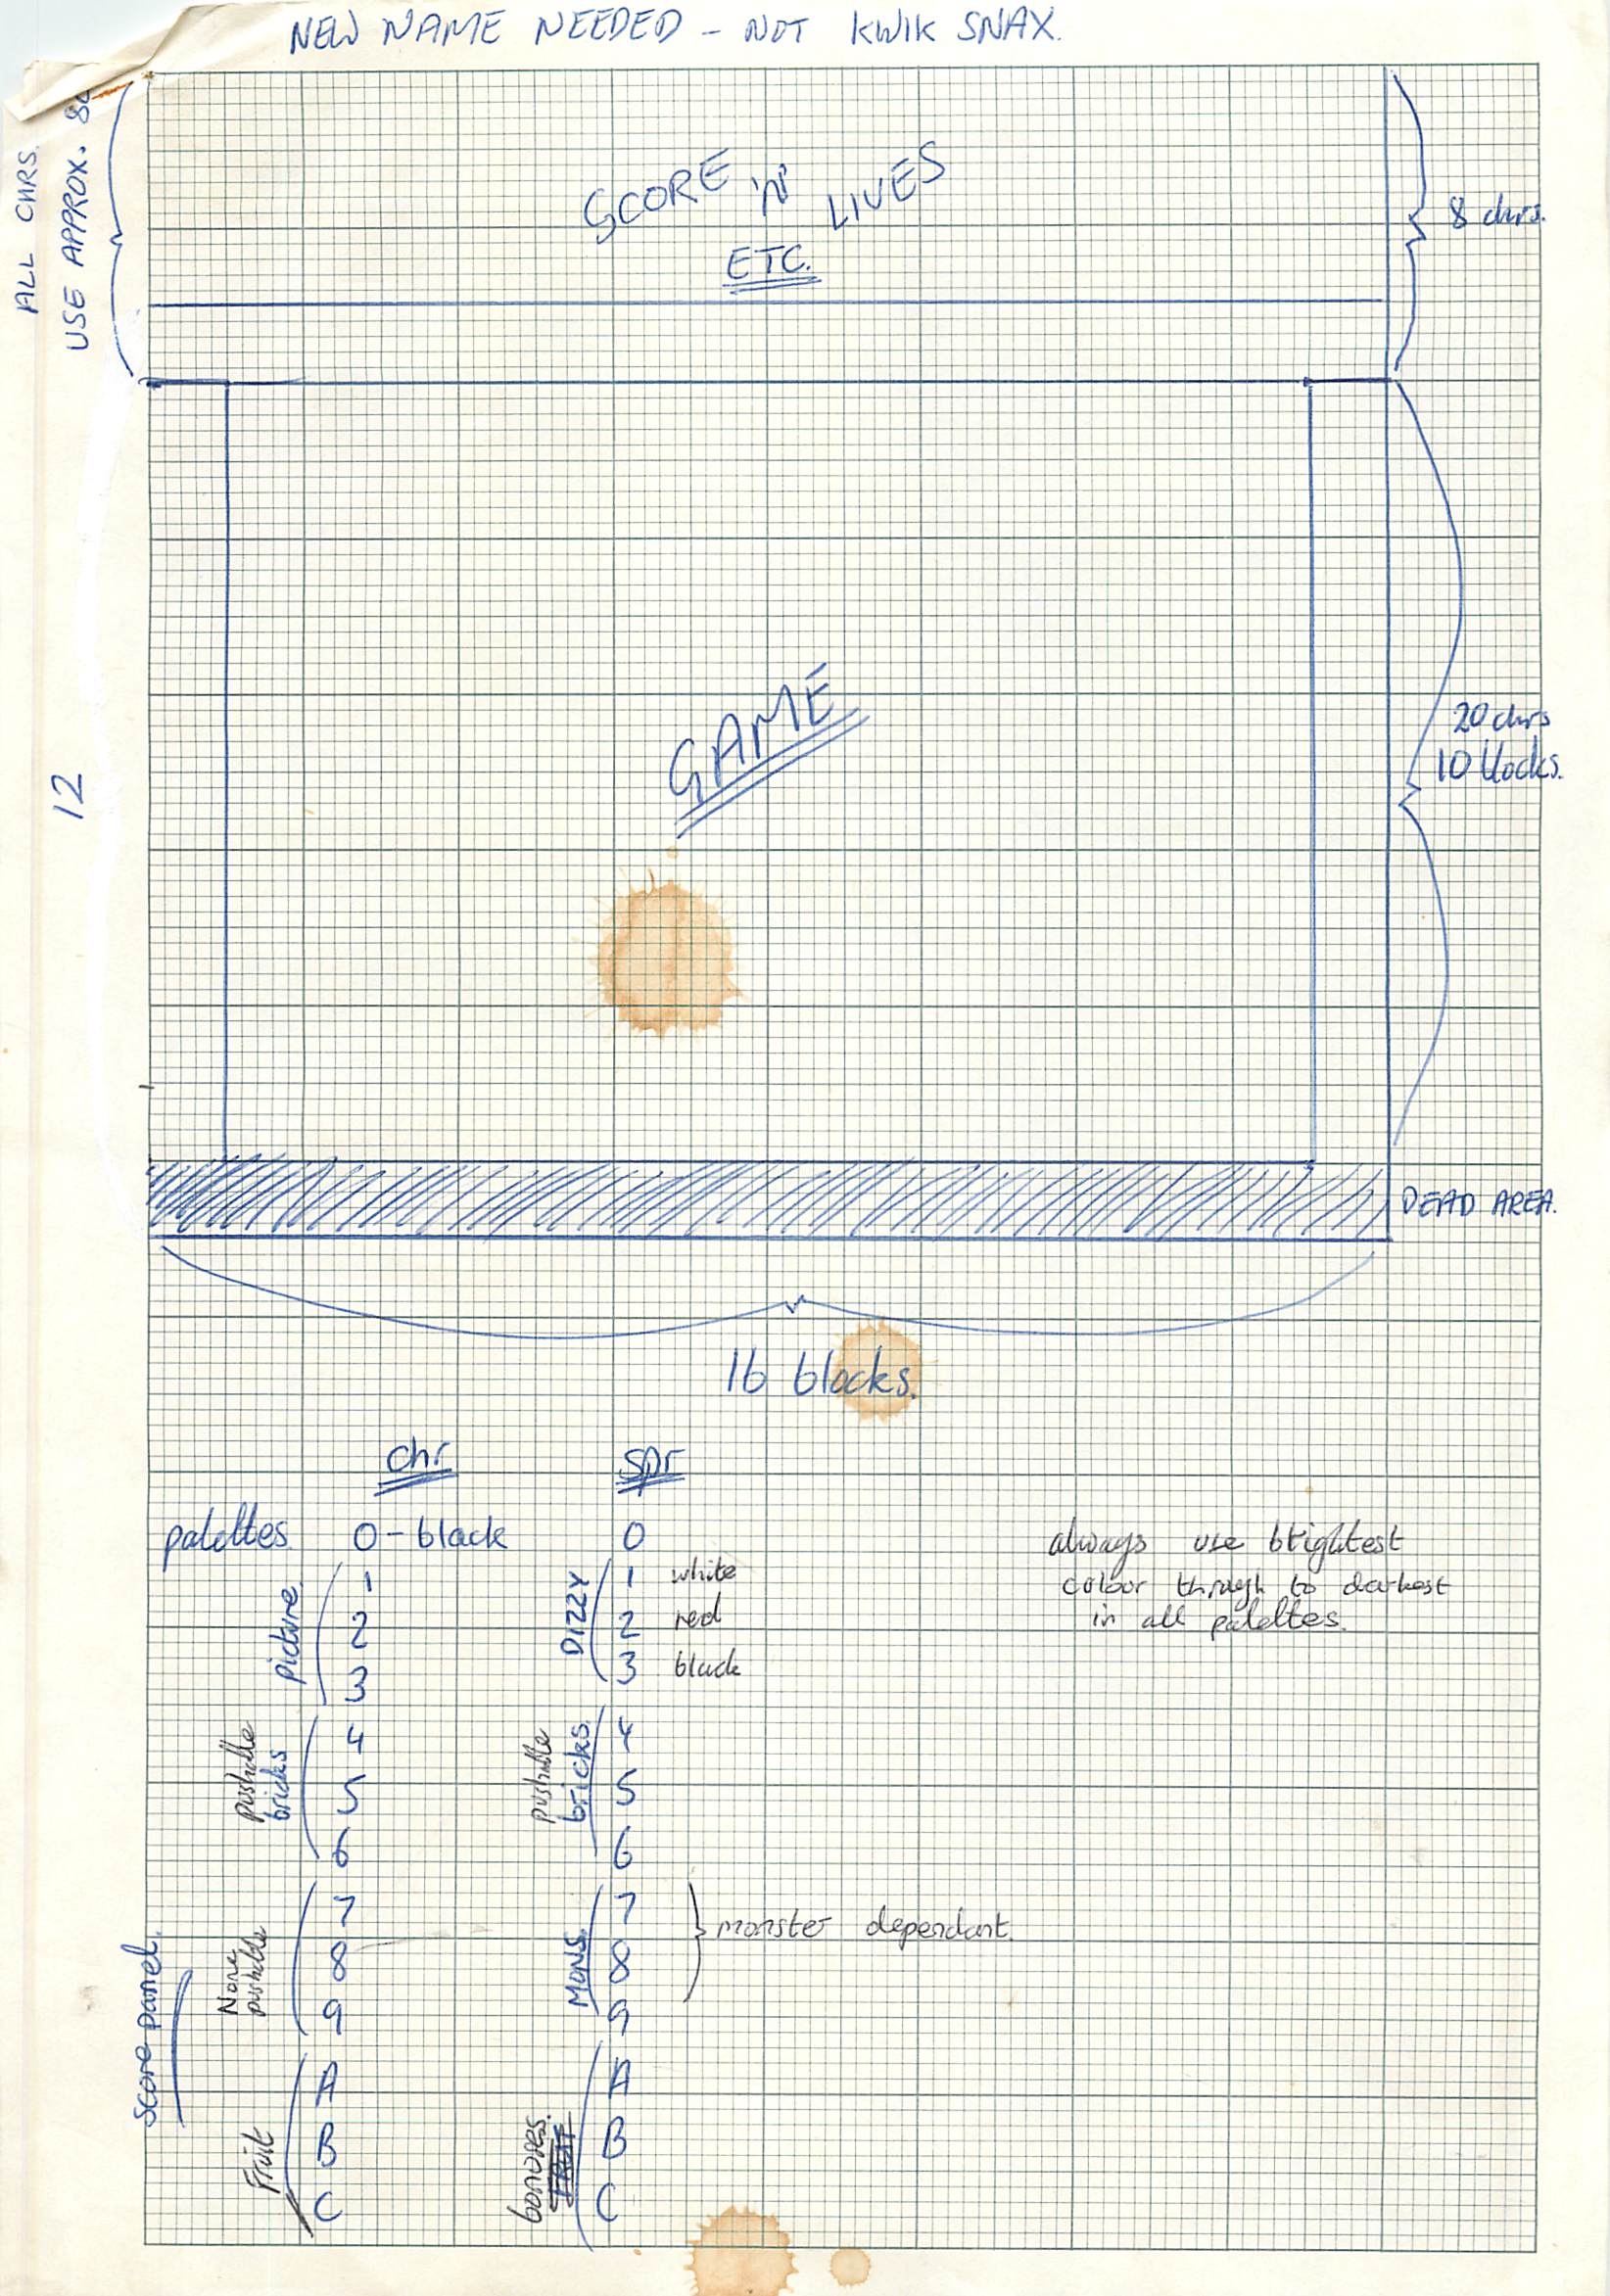 NEW NAME NEEDED - NOT KWIK SNAX.
ALL CHRS.
USE APPROX.
SCORE 'N' LIVES
ETC.
8 chrs.
GAME
20 chrs
10 blocks.
12
DEAD AREA.
16 blocks.
chr
spr
palettes 0 - black 0
always use brightest
colour through to darkest
in all palettes.
picture
1
2
3
DIZZY
1 white
2 red
3 black
pushable
bricks
4
5
6
pushable
bricks.
4
5
6
score panel.
None
pushable
7
8
9
MONS.
7
8
9
monster dependant.
Fruit
A
B
C
bonuses.
FRUIT
A
B
C